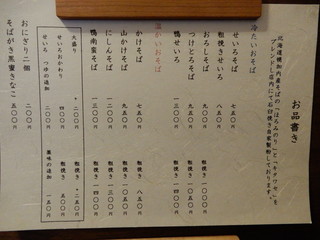 お品書き
北海道幌加内産そばの「ほろみのり」と「キタワセ」を
ブレンドし店内にて石臼挽き自家製粉しております。
冷たいおそば
せいろそば 七五〇円
粗挽きせいろ 八五〇円
おろしそば 九五〇円 粗挽き 一〇〇〇円
つけとろそば 九五〇円 粗挽き 一〇〇〇円
鴨せいろ 一三〇〇円 粗挽き 一四〇〇円
温かいおそば
かけそば 七五〇円 粗挽き 八五〇円
山かけそば 九五〇円
にしんそば 一三〇〇円 粗挽き 一四〇〇円
鴨南蛮そば 一三〇〇円 粗挽き 一四〇〇円
大盛り +二〇〇円 粗挽き +二五〇円
せいろおかわり 四〇〇円 粗挽き 五〇〇円
せいろ つゆの追加 二〇〇円 薬味の追加 一五〇円
おにぎり二個 二〇〇円
そばがき黒蜜きなこ 五〇〇円